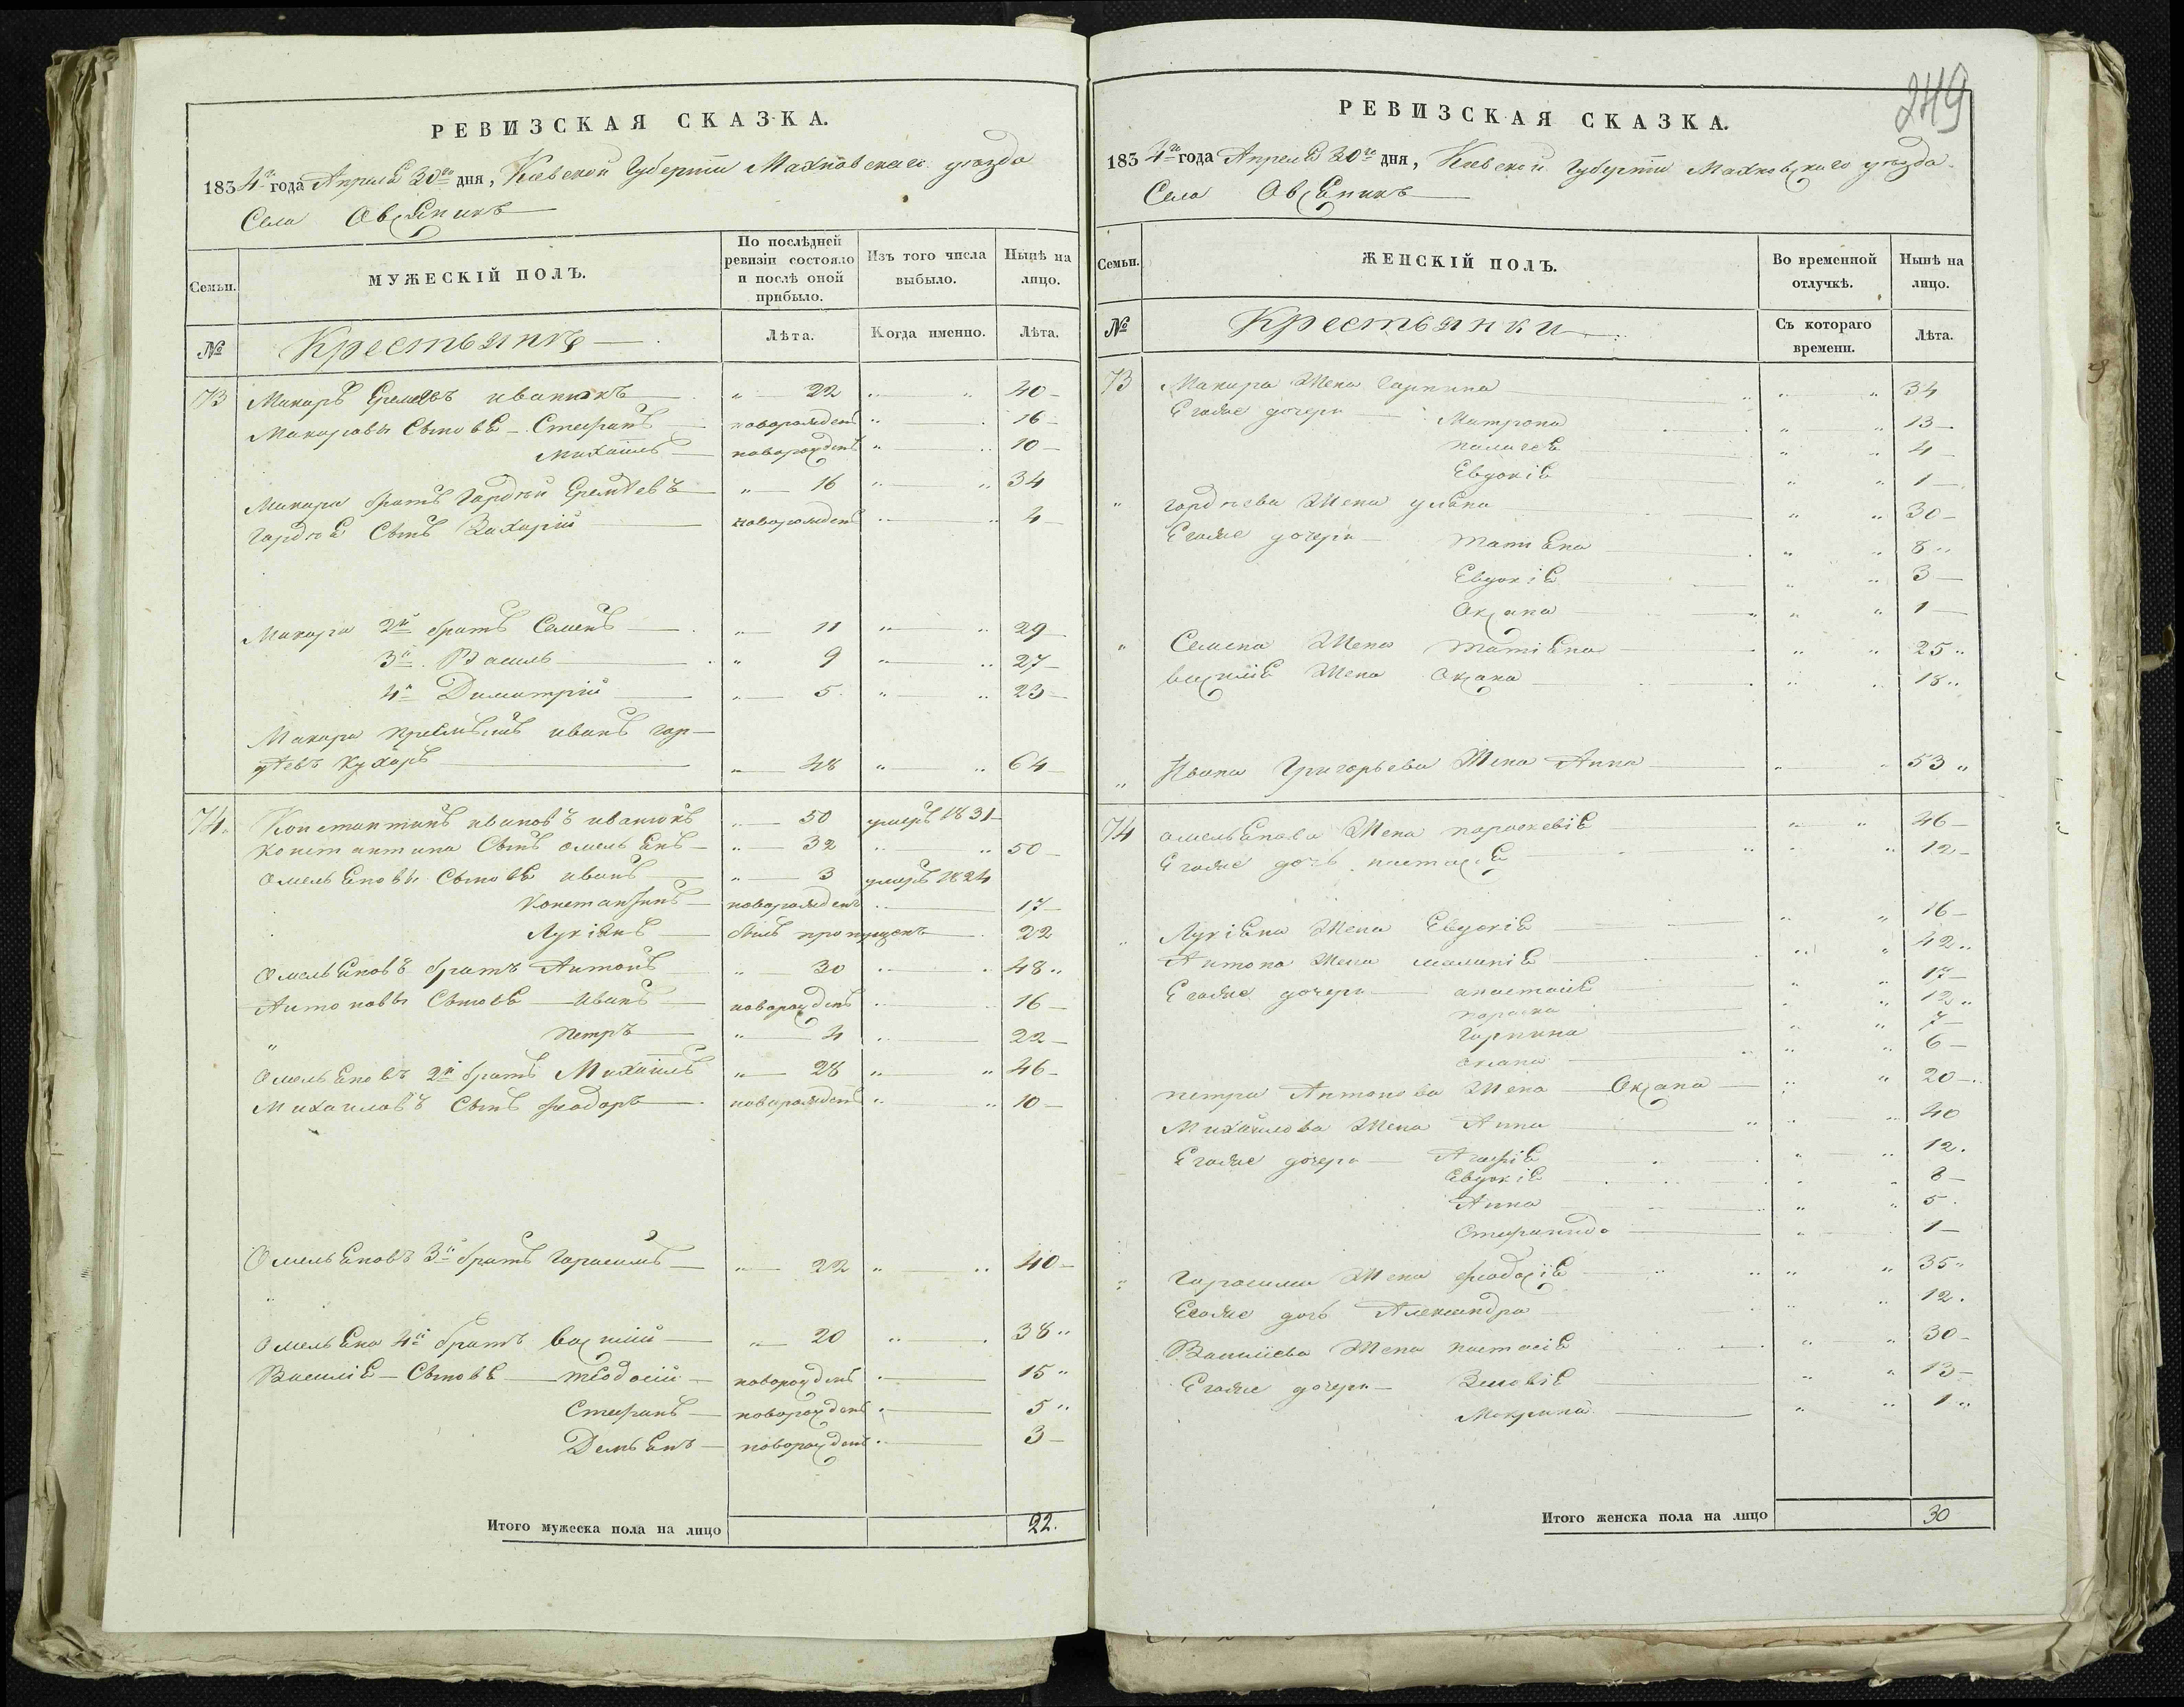 РЕВИЗСКАЯ СКАЗКА.
1834го года Апреля 30го дня, Киевской Губернiи Махновскаго уезда
Села Овсяникъ
Семьи.
МУЖЕСКІЙ ПОЛЪ.
По послѣдней ревизіи состояло и послѣ оной прибыло.
Изъ того числа выбыло.
Нынѣ на лицо.
№
Крестьянѣ
Лѣта.
Когда именно.
Лѣта.
73 Макаръ Еремѣевъ иванюкъ „ 22 „ „ 40
Макаровы Сыновья Стефанъ новорожденъ „ 16
Михаилъ новорожденъ „ 10
Макара братъ Гордѣй Еремѣевъ „ 16 „ „ 34
Гордѣя Сынъ Захарій новорожденъ „ „ 4
Макара 2й братъ Семенъ „ 11 „ „ 29
3й Василь „ 9 „ „ 27
4й Димитрій „ 5 „ „ 23
Макара иванъ
Кухаръ „ 48 „ „ 64
74. Константинъ ивановъ иванюкъ „ 50 умеръ 1831
Константина Сынъ омельянъ „ 32 „ „ 50
Омельяновы Сыновья иванъ „ 3 умеръ 1824
Константинъ новорожденъ 17
Лукіянъ былъ пропущенъ 22
Омельяновъ братъ Антонъ „ 30 „ 48
Антоновы Сыновья иванъ новорожденъ „ 16
„ петръ „ 4 „ 22
Омельяновъ 2й братъ Михаилъ „ 28 „ „ 46
Михаиловъ Сынъ феодоръ новорожденъ „ „ 10
Омельяновъ 3й братъ Гарасимъ „ 22 „ „ 40
Омельяна 4й братъ василій „ 20 „ 38
Василія Сыновья новорожденъ 15
Стефанъ новорожденъ 5
Демьянъ новорожденъ 3
Итого мужеска пола на лицо 22.
249
РЕВИЗСКАЯ СКАЗКА.
1834го года Апреля 30го дня, Киевской Губернiи Махновскаго уезда
Села Овсяникъ
Семьи.
ЖЕНСКІЙ ПОЛЪ.
Во временной отлучкѣ.
Нынѣ на лицо.
№
Крестьянки
Съ котораго времени.
Лѣта.
73 Макара Жена Гарпина „ „ 34
Егояже дочери Матрона „ „ 13
палагея „ „ 4
Евдокія „ „ 1
„ Гордѣева Жена уляна „ „ 30
Егояже дочери татіяна „ „ 8
Евдокія „ „ 3
Оксана „ „ 1
„ Семена Жена татіяна „ „ 25
василія Жена Оксана „ „ 18
„ Ивана Григорьева Жена Анна „ „ 53
74 омельянова Жена параскевія „ „ 46
Егояже дочь настасія „ „ 12
„ Лукіяна Жена Евдокія „ „ 16
Антона Жена меланія „ „ 42
Егояже дочери анастасія „ „ 17
параска „ „ 12
Гарпина „ „ 7
оксана „ „ 6
петра Антонова Жена Оксана „ „ 20
Михаилова Жена Анна „ „ 40
Егояже дочери Агафія „ „ 12.
Евдокія „ „ 8
Анна „ „ 5
Стефанида „ 1
„ Гарасима Жена феодосія „ „ 35
Егояже дочь Александра „ „ 12.
Василиева Жена настасія „ „ 30
Егояже дочери Зеновія „ „ 13
Мокрина „ „ 1
Итого женска пола на лицо 30